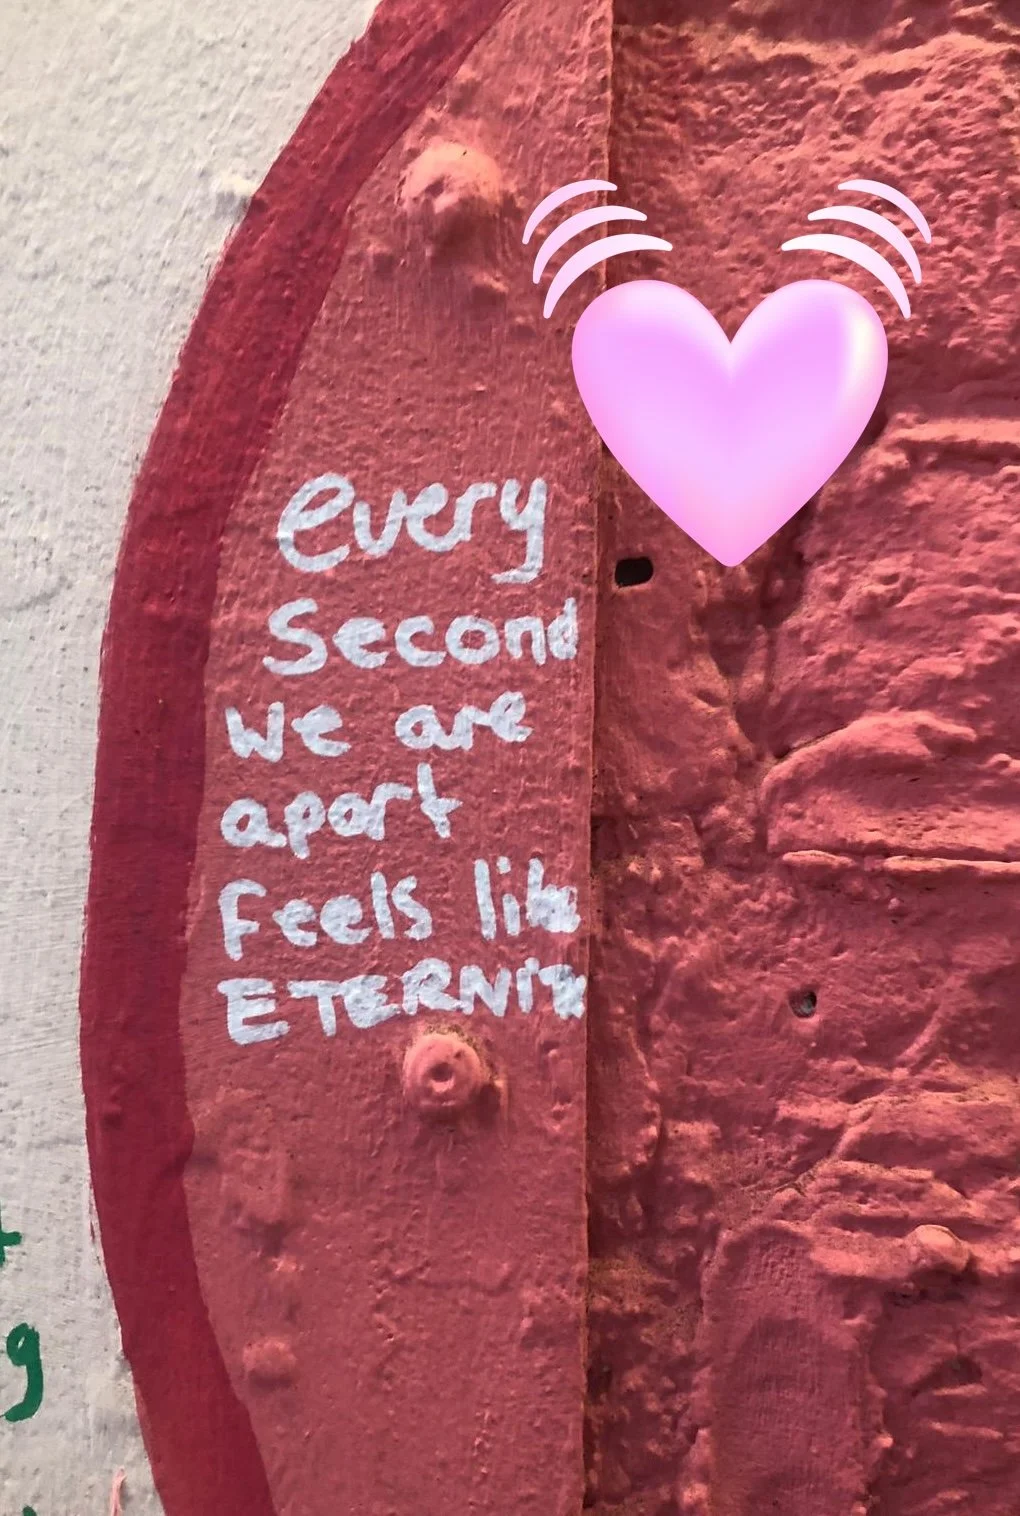 every
Second
we are
apart
feels like
ETERNITY
g